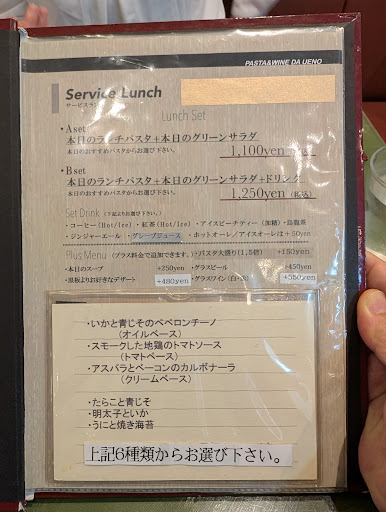 PASTA&WINE DA UENO
Service Lunch
サービスランチ
Lunch Set
・A set
本日のランチパスタ+本日のグリーンサラダ
本日のおすすめパスタからお選び下さい。
1,100yen
・B set
本日のランチパスタ+本日のグリーンサラダ+ドリンク
本日のおすすめパスタからお選び下さい。
1,250yen (税込)
Set Drink (下記よりお選び下さい。)
・コーヒー(Hot/Ice) ・紅茶(Hot/Ice) ・アイスピーチティー(加糖)・烏龍茶
・ジンジャーエール ・グレープジュース ・ホットオーレ/アイスオーレは+50yen
Plus Menu (プラス料金で追加できます。) ・パスタ大盛り(1.5倍) +150yen
・本日のスープ +250yen ・グラスビール +450yen
・黒板よりお好きなデザート +480yen ・グラスワイン(白・赤) +550yen
・いかと青じそのペペロンチーノ
(オイルベース)
・スモークした地鶏のトマトソース
(トマトベース)
・アスパラとベーコンのカルボナーラ
(クリームベース)
・たらこと青じそ
・明太子といか
・うにと焼き海苔
上記6種類からお選び下さい。